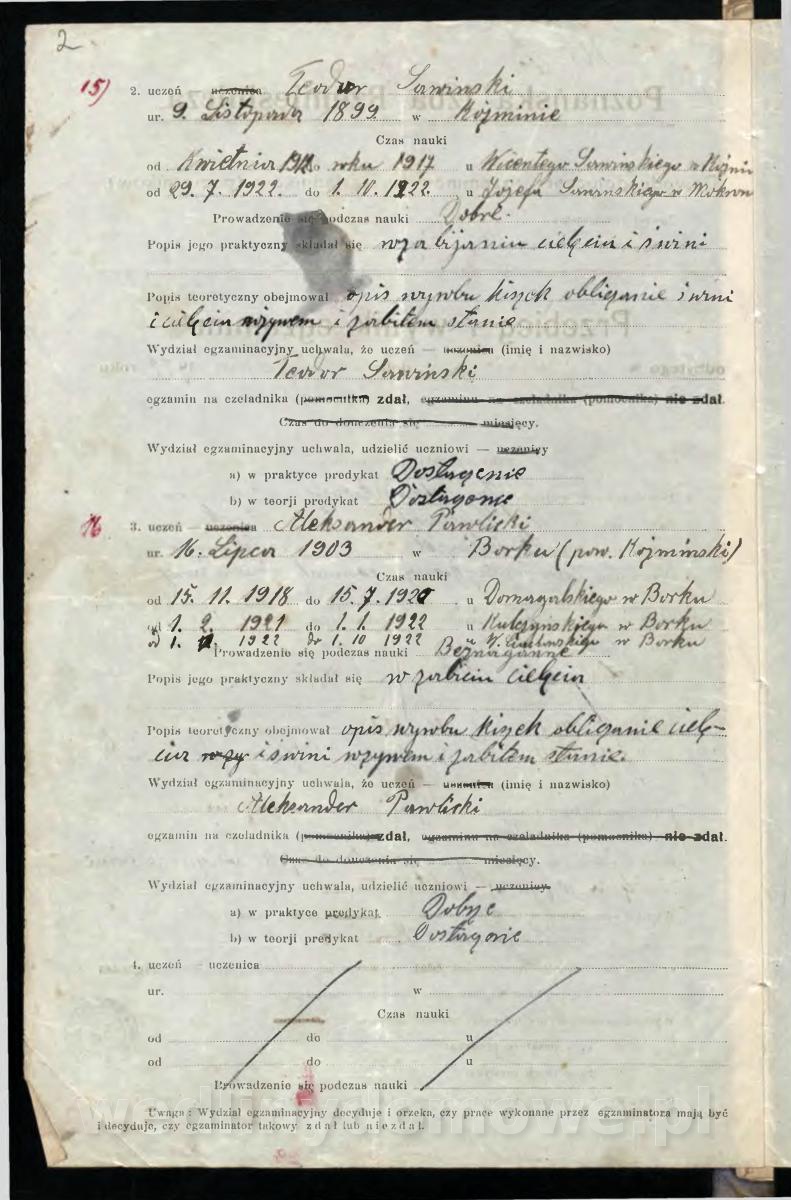 2
15) 2. uczeń uczenica Teodor Sawinski
ur. 9. Listopada 1899 w Koźminie
Czas nauki
od Kwietnia do roku 1917 u Wicentego Sawińskiego w
od 29. 7. 1922. do 1. 10. 1922. u Józefa Sawinskiego w
Prowadzenie się podczas nauki Dobre.
Popis jego praktyczny składał się w zabijaniu cielęcia i świni
Popis teoretyczny obejmował opis wyrobu kiszek obliczanie świni
i cielęcia w żywem i zabitem stanie
Wydział egzaminacyjny uchwala, że uczeń — uczenica (imię i nazwisko)
Teodor Sawiński
egzamin na czeladnika (pomocnika) zdał, egzaminu na czeladnika (pomocnika) nie zdał.
Czas do douczenia się miesięcy.
Wydział egzaminacyjny uchwala, udzielić uczniowi — uczenicy
a) w praktyce predykat
b) w teorji predykat
16 3. uczeń uczenica Aleksander Pawlicki
ur. 16. Lipca 1903 w Borku (pow. Koźmiński)
Czas nauki
od 15. 11. 1918 do 15. 7. 1920 u Domagalskiego w Borku
od 1. 2. 1921 do 1. 1. 1922 u Kulczynskiego w Borku
od 1. 1922 do 1. 10 1922 u W. w Borku
Prowadzenie się podczas nauki Beznaganne
Popis jego praktyczny składał się w zabiciu cielęcia
Popis teoretyczny obejmował opis wyrobu kiszek obliczanie cielę-
cia i świni w żywem i zabitem stanie.
Wydział egzaminacyjny uchwala, że uczeń — uczenica (imię i nazwisko)
Aleksander Pawlicki
egzamin na czeladnika (pomocnika) zdał, egzaminu na czeladnika (pomocnika) nie zdał.
Czas do douczenia się miesięcy.
Wydział egzaminacyjny uchwala, udzielić uczniowi — uczenicy
a) w praktyce predykat
b) w teorji predykat
4. uczeń — uczenica
ur. w
Czas nauki
od do u
od do u
Prowadzenie się podczas nauki
Uwaga: Wydział egzaminacyjny decyduje i orzeka, czy prace wykonane przez egzaminatora mają być
i decyduje, czy egzaminator takowy zdał lub nie zdał.